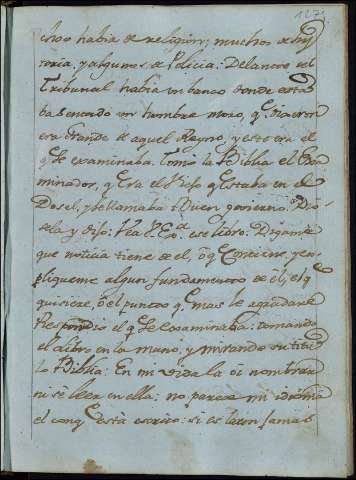 127
choo habia de religion; muchos de his
toria, y algunos de Policia: Delante del
Tribunal habia un banco donde esta
ba sentado un hombre mozo, q̃ dixeron
era Grande de aquel Reyno, y este era el
q̃ se examinaba. Tomò la Biblia el Exa
minador, q̃ era el Viejo q̃ estaba en el
Dosel, y se llamaba Buen govierno. Dio
sela, y dijo: Vea V. Exᵃ ese libro: Digame
que noticia tiene de el, ò q̃ Contiene, y ex
pliqueme algun fundamento de èl, el q̃
quisiere, ò el punto q̃ mas le agradare
Respondió el q̃ se examinaba: tomando
el libro en la mano, y mirando su titu
lo Biblia: En mi vida la oí nombrar
ni sè leer en ella: no parece mi idioma
el con q̃ està escrito: si es latin jamas